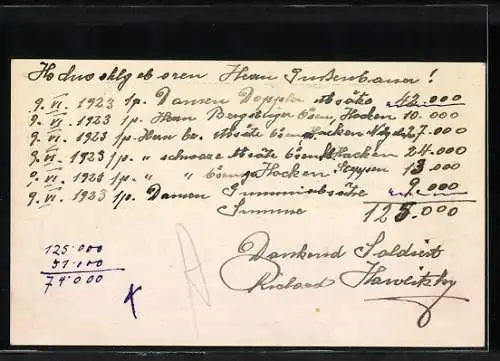 Hochwohlgeboren Herrn Gussenbauer!
9. VI. 1923 1 p. Damen Doppler Absätze 42.000
9. VI. 1923 1 p. Herrn Bergsteiger Ösen, Hacken 10.000
9. VI. 1923 1 p. Herrn br. Absätze Ösen Hacken 27.000
9. VI. 1923 1 p. " schwarze Absätze Ösen Hacken 24.000
9. VI. 1923 1 p. " " Ösen Hacken Steppen 13.000
9. VI. 1923 1 p. Damen Gummiabsätze 9.000
Summe 125.000
125.000
51.000
74.000
Dankend Saldiert
Richard Hawlitzky